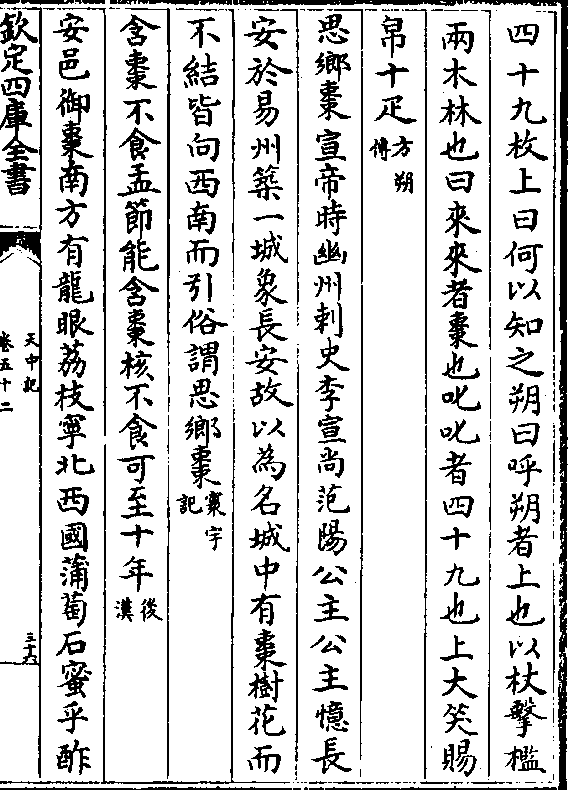 四十九枚上曰何以知之朔曰呼朔者上也以杖擊檻
兩木林也曰來來者棗也叱叱者四十九也上大笑賜
帛十疋方朔傳
思鄉棗宣帝時幽州刺史李宣尚范陽公主公主憶長
安於易州築一城象長安故以為名城中有棗樹花而
不結皆向西南而引俗謂思鄉棗寰宇記
含棗不食孟節能含棗核不食可至十年後漢
安邑御棗南方有龍眼荔枝寧北西國蒲萄石蜜乎酢
欽定四庫全書
天中記
卷五十二
三十六